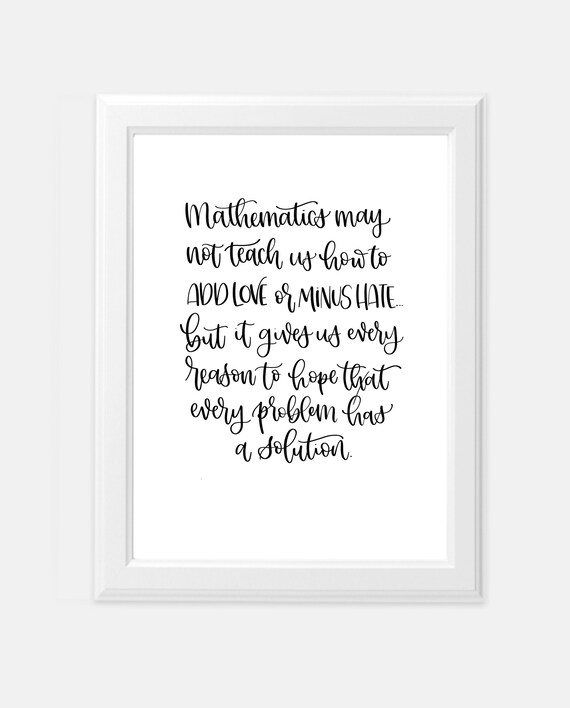 Mathematics may
not teach us how to
ADD LOVE or MINUS HATE...
but it gives us every
reason to hope that
every problem has
a solution.